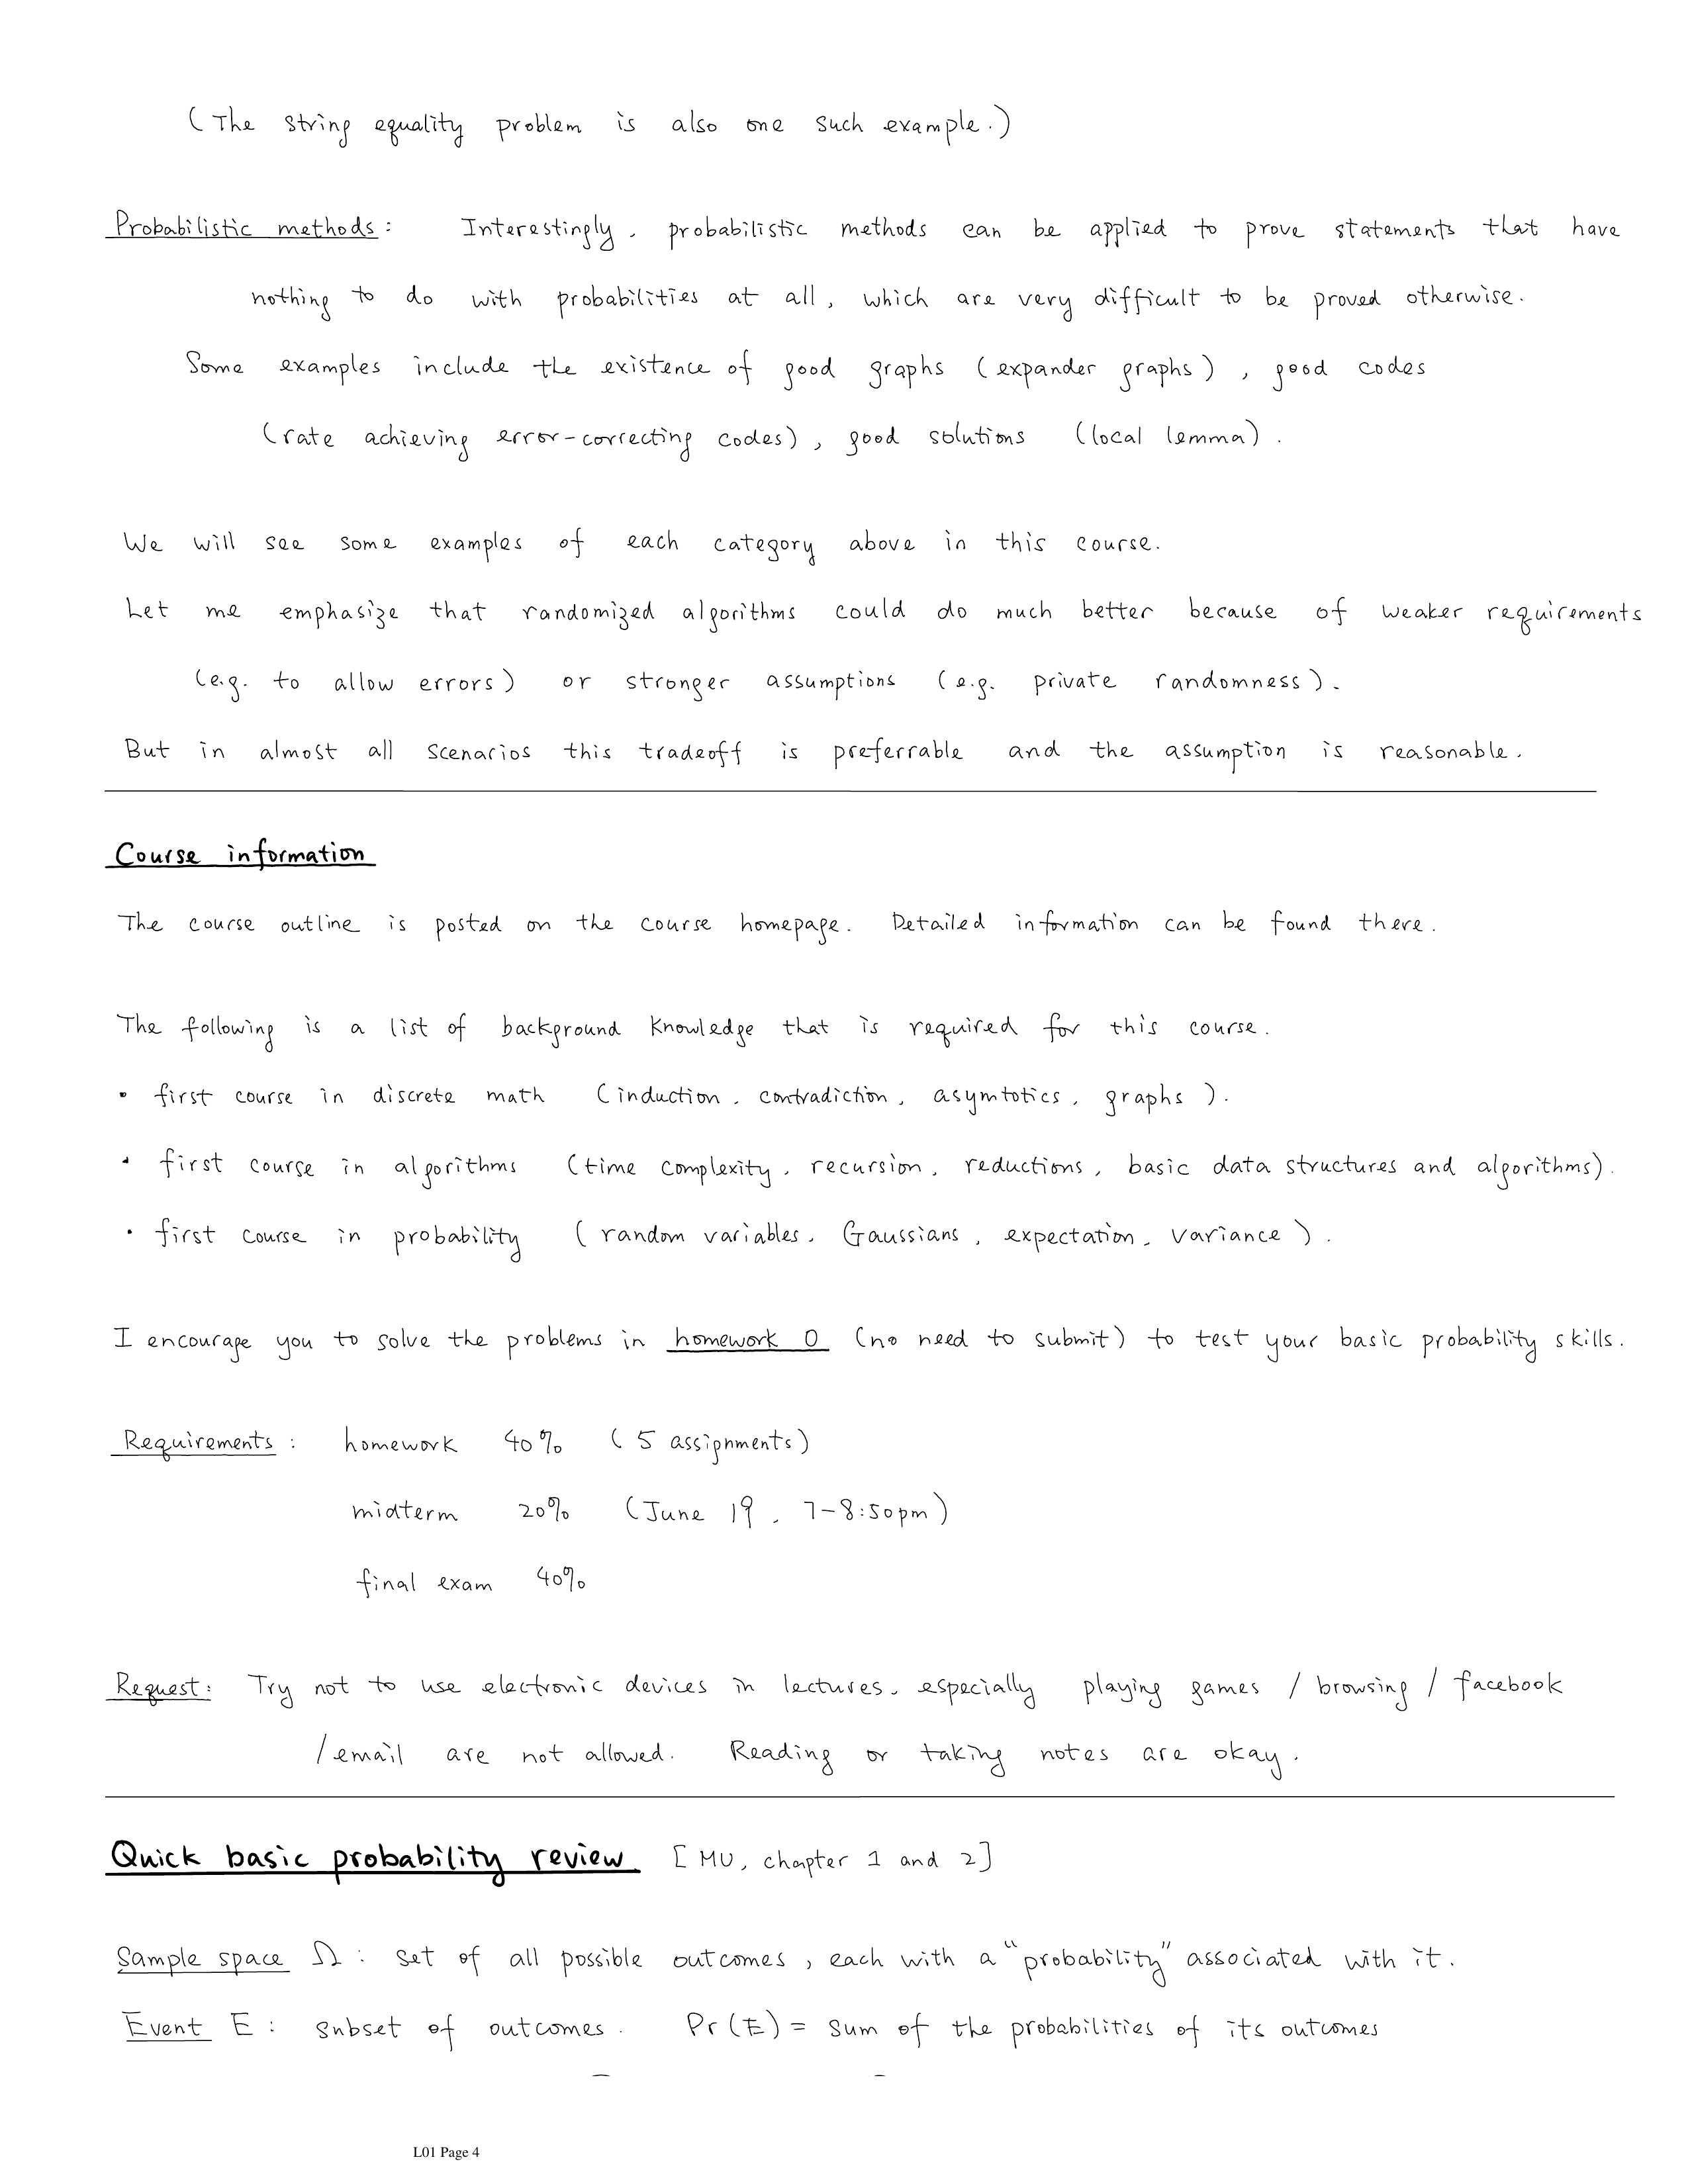 (The string equality problem is also one such example.)
Probabilistic methods: Interestingly, probabilistic methods can be applied to prove statements that have
nothing to do with probabilities at all, which are very difficult to be proved otherwise.
Some examples include the existence of good graphs (expander graphs), good codes
(rate achieving error-correcting codes), good solutions (local lemma).
We will see some examples of each category above in this course.
Let me emphasize that randomized algorithms could do much better because of weaker requirements
(e.g. to allow errors) or stronger assumptions (e.g. private randomness).
But in almost all scenarios this tradeoff is preferrable and the assumption is reasonable.
Course information
The course outline is posted on the course homepage. Detailed information can be found there.
The following is a list of background knowledge that is required for this course.
• first course in discrete math (induction, contradiction, asymtotics, graphs).
• first course in algorithms (time complexity, recursion, reductions, basic data structures and algorithms).
• first course in probability (random variables, Gaussians, expectation, variance).
I encourage you to solve the problems in homework 0 (no need to submit) to test your basic probability skills.
Requirements: homework 40% (5 assignments)
midterm 20% (June 19, 7-8:50pm)
final exam 40%
Request: Try not to use electronic devices in lectures, especially playing games / browsing / facebook
/email are not allowed. Reading or taking notes are okay.
Quick basic probability review [MU, chapter 1 and 2]
Sample space Ω: set of all possible outcomes, each with a "probability" associated with it.
Event E: subset of outcomes. Pr(E) = sum of the probabilities of its outcomes
L01 Page 4